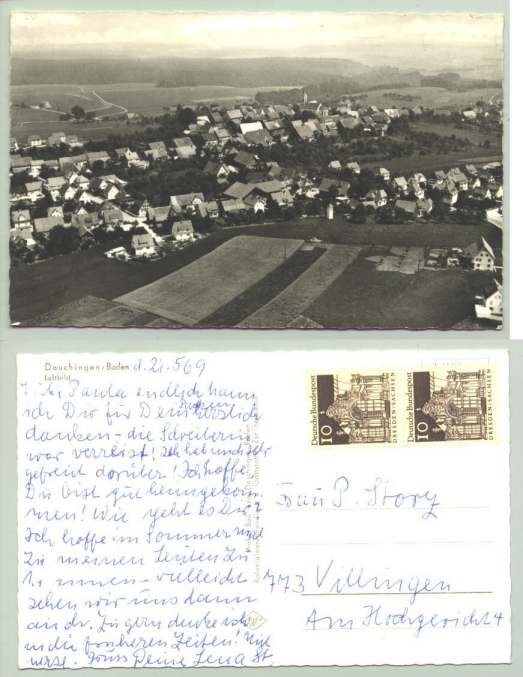 Dauchingen/Baden d. 21.569
Luftbild
Liebe Paula endlich kann
ich Dir für Dein Brief herzlich
danken – die Schreiberin
war verreist! Ich hab mich sehr
gefreut darüber! Ich hoffe
Du bist gut heimgekom-
men! Wie geht es Dir?
Ich hoffe im Sommer mal
zu meinen Leuten zu
kommen – vielleicht
sehen wir uns dann
an dr. Zu gern denke ich
an die früheren Zeiten!
Gruss Deine Lena St.
Deutsche Bundespost
10
DRESDEN-SACHSEN
Deutsche Bundespost
10
DRESDEN-SACHSEN
Frau P. Story
773 Villingen
Am Hochgericht 4